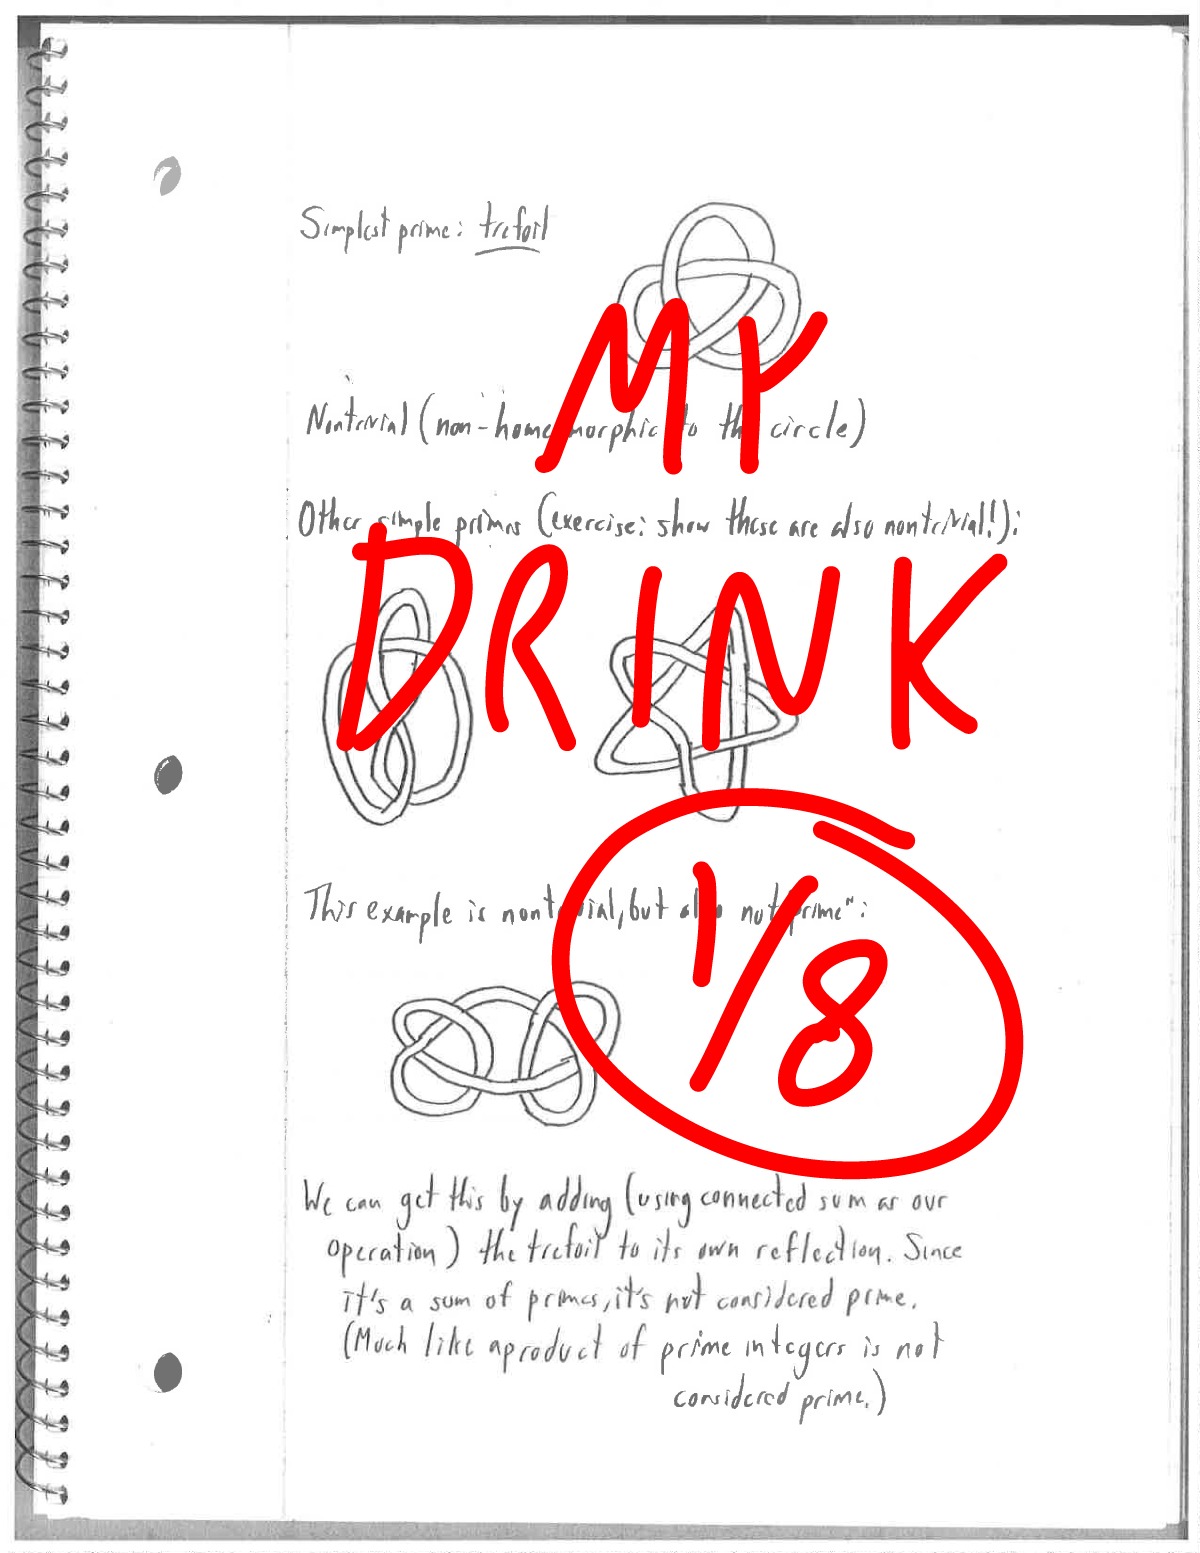 Simplest prime: trefoil
MY
Nontrivial (non-homeomorphic to the circle)
Other simple primes (exercise: show these are also nontrivial!):
DRINK
This example is nontrivial, but also not "prime":
1/8
We can get this by adding (using connected sum as our
operation) the trefoil to its own reflection. Since
it's a sum of primes, it's not considered prime.
(Much like a product of prime integers is not
considered prime.)